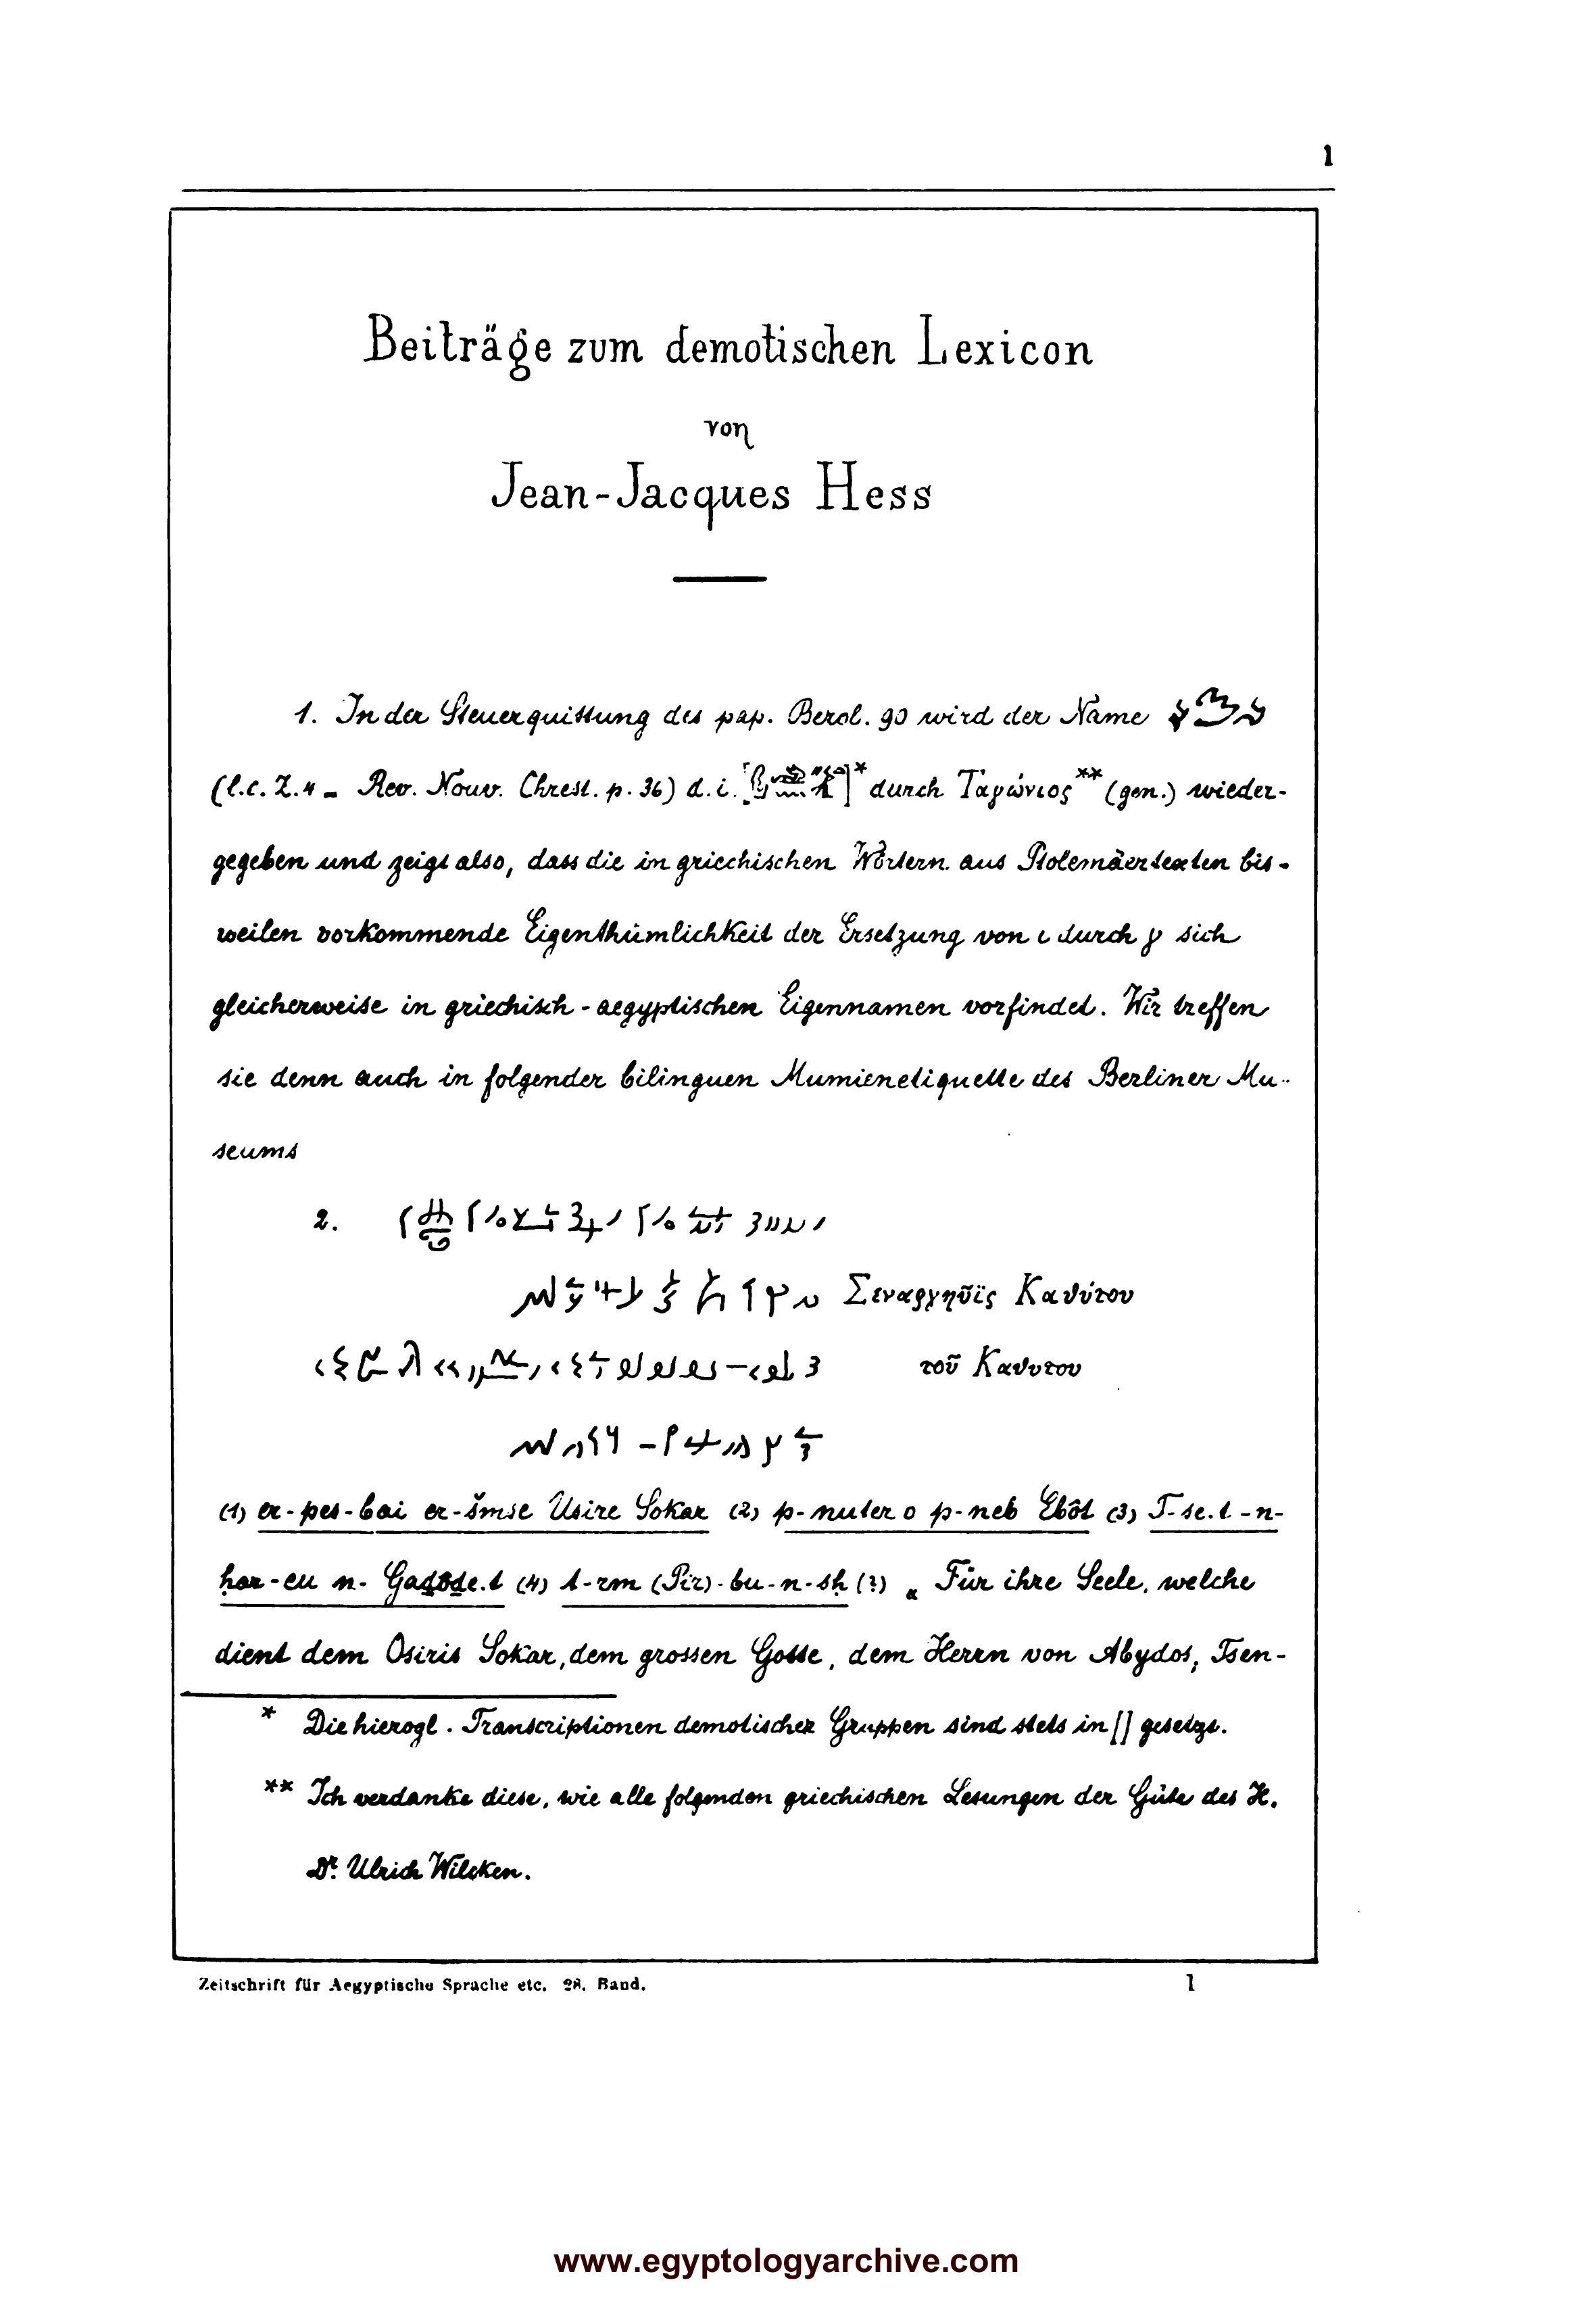 1
Beiträge zum demotischen Lexicon
von
Jean-Jacques Hess
1. In der Steuerquittung des pap. Berol. 90 wird der Name
(l.c. Z. 4 - Rev. Nouv. Chrest. p. 36) d. i. [ ]* durch Ταγώνιος** (gen.) wieder-
gegeben und zeigt also, dass die in griechischen Wörtern aus Ptolemäertexten bis-
weilen vorkommende Eigenthümlichkeit der Ersetzung von ι durch γ sich
gleicherweise in griechisch-aegyptischen Eigennamen vorfindet. Wir treffen
sie denn auch in folgender bilinguen Mumienetiquette des Berliner Mu-
seums
2.
Σεναργηῦϊς Καθύτου
τοῦ Καθυτου
(1) er-pes-bai er-šmse Usire Sokar (2) p-nuter o p-neb Ebôt (3) T-se.t-n-
ḥar-eu n- (4) t-rm (Pir)-bu-n-sḥ (?) „Für ihre Seele, welche
dient dem Osiris Sokar, dem grossen Gotte, dem Herrn von Abydos, Tsen-
* Die hierogl. Transcriptionen demotischer Gruppen sind stets in [] gesetzt.
** Ich verdanke diese, wie alle folgenden griechischen Lesungen der Güte des H.
Dr. Ulrich Wilcken.
Zeitschrift für Aegyptische Sprache etc. 28. Band. 1
www.egyptologyarchive.com